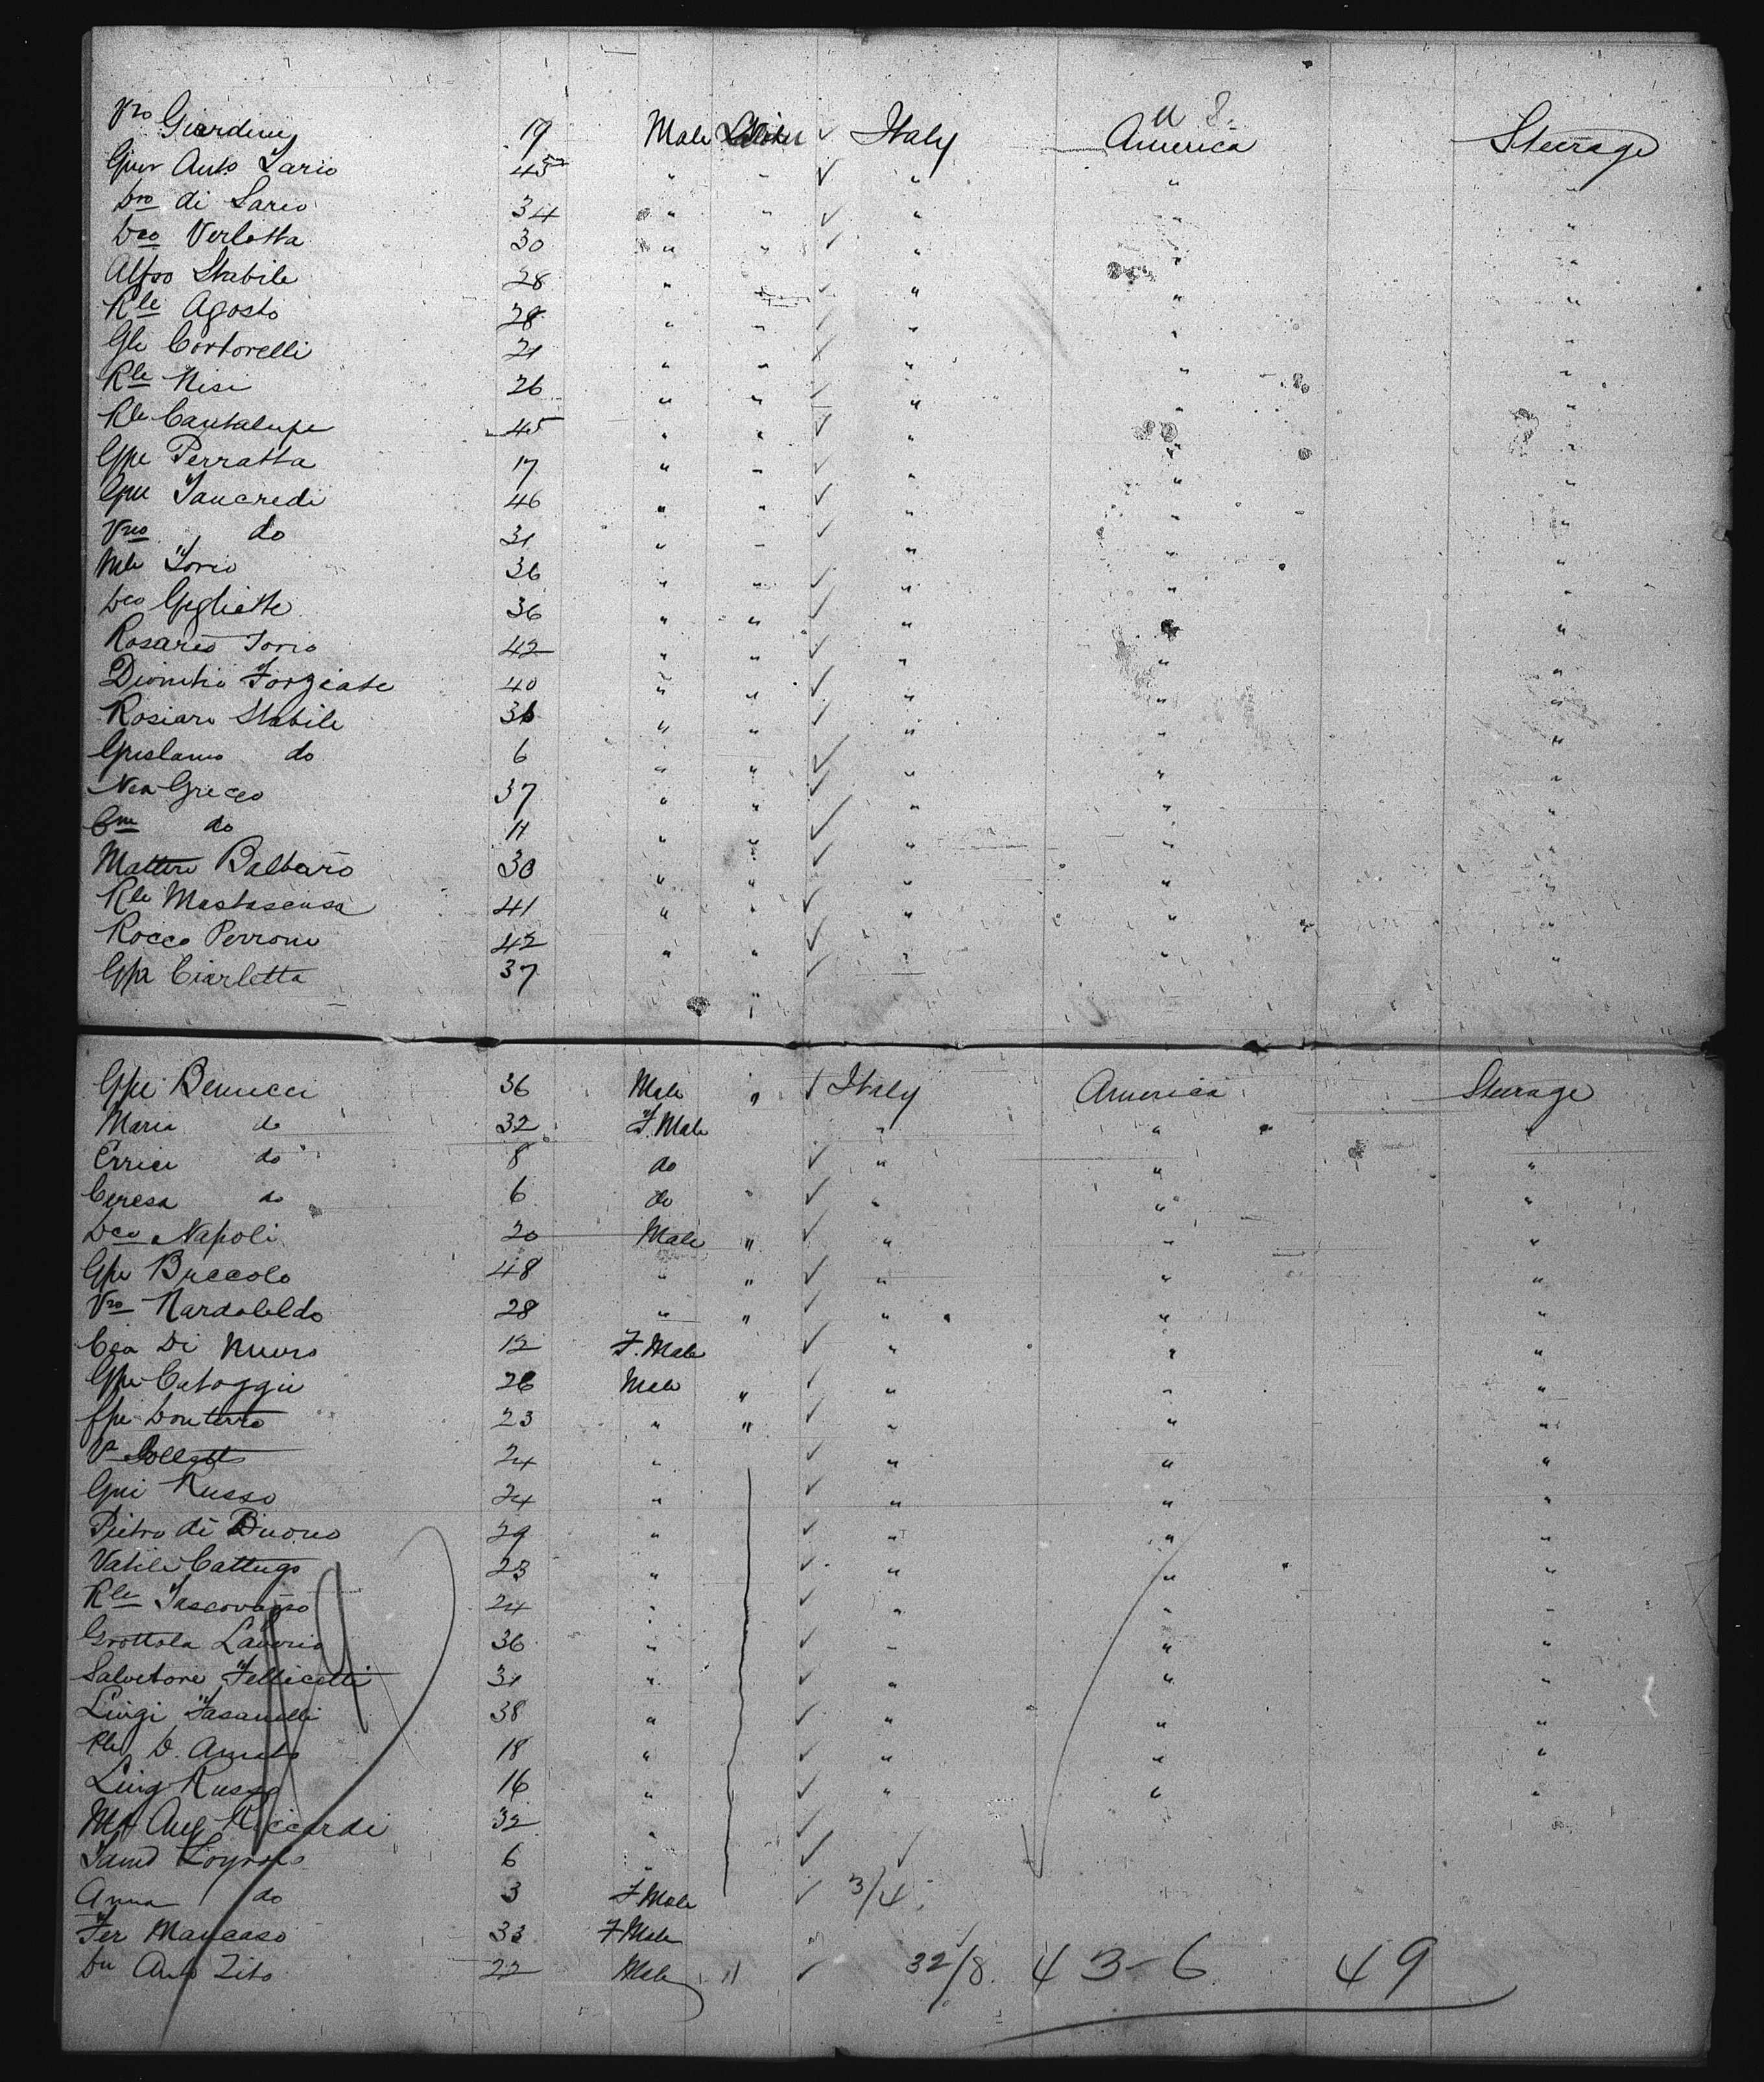 Vro Giardini 19 Male Laborer ✓ Italy U S. America Steerage
Giov Anto Iario 45 " " ✓ " " "
Dro di Sario 34 " " ✓ " " "
Dco Verlotta 30 " " ✓ " " "
Alfso Stabile 28 " " ✓ " " "
Rle Agosto 28 " " ✓ " " "
Gle Cortorelli 21 " " ✓ " " "
Rle Nisi 26 " " ✓ " " "
Rle Cantalupe 45 " " ✓ " " "
Gpe Perratta 17 " " ✓ " " "
Gpe Tancredi 46 " " ✓ " " "
Vro do 31 " " ✓ " " "
Mle Iorio 36 " " ✓ " " "
Dco Gigliette 36 " " ✓ " " "
Rosario Iorio 42 " " ✓ " " "
Dionitio Forziate 40 " " ✓ " " "
Rosiaro Stabile 36 " " ✓ " " "
Grislamo do 6 " " ✓ " " "
Nca Greceo 37 " " ✓ " " "
Cme do 11 " " ✓ " " "
Matteo Balbaro 30 " " ✓ " " "
Rle Mastascusa 41 " " ✓ " " "
Rocco Perrone 42 " " ✓ " " "
Gpe Ciarletta 37 " ✓
Gpe Benucci 36 Male " ✓ Italy America Steerage
Maria do 32 F. Male " " "
Errici do 8 do ✓ " " "
Ceresa do 6 do ✓ " " "
Dco Napoli 20 Male " ✓ " " "
Gpe Buccolo 48 " " ✓ " " "
Vro Nardobeldo 28 " " ✓ " " "
Cea Di Muro 12 F. Male ✓ " " "
Gpe Catoggio 26 Male " ✓ " " "
fpe Donterro 23 " " ✓ " " "
Va 24 " ✓ " " "
Gpe Russo 24 " ✓ " " "
Pietro di Buono 29 " ✓ " " "
Vatile Cattugo 23 " ✓ " " "
Rle 24 " ✓ " " "
Grottola Lauorio 36 " ✓ " " "
Salvetore Fellicetti 31 " ✓ " " "
Luigi Fasanelli 38 " ✓ " " "
Rle D. Amato 18 " ✓ " " "
Luig Russo 16 " ✓ " " "
Ma Ang Riccardi 32 " ✓
6 " ✓ ✓
Anna do 3 F Male ✓ 3/4
Fer Mancaso 33 F Male "
Dn Anto Zito 22 Male " ✓ 32/8. 43-6 49